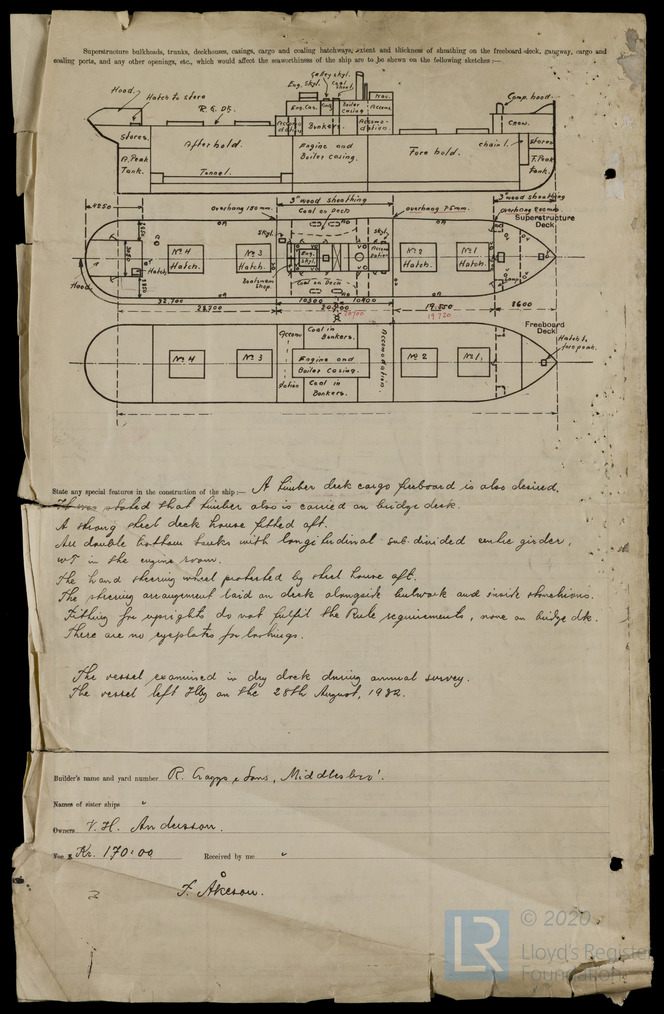 Superstructure bulkheads, trunks, deckhouses, casings, cargo and coaling hatchways, extent and thickness of sheathing on the freeboard deck, gangway, cargo and
coaling ports, and any other openings, etc., which would affect the seaworthiness of the ship are to be shewn on the following sketches:—
Galley skyl.
Eng. Skyl.
Coal shoot.
Hood.
Hatch to store
R.Q.Dk.
Comp. hood.
Nav.
Eng. Cas.
Boiler casing
Accom.
Crew.
Stores.
Afterhold.
Accomodation
Bunkers.
Accomodation.
chain l.
Stores
A. Peak Tank.
Tunnel.
Engine and Boiler Casing.
Fore hold.
F. Peak Tank.
4250
overhang 150mm.
3" wood sheathing
overhang 75mm.
3" wood sheathing
Coal on Deck
Superstructure Deck
Skyl.
Skyl.
Nº 4 Hatch.
Nº 3 Hatch.
Eng. Skyl.
Nº 2 Hatch.
Nº 1. Hatch.
Hatch
Hood
Boatswain shop.
Coal on Deck
32.700
23.700
10300
10400
20700
19.550
19 720
8600
Freeboard Deck
Coal in Bunkers.
Accomodation.
Hatch to forepeak.
Nº 4
Nº 3
Engine and Boiler Casing.
Nº 2
Nº 1.
Coal in Bunkers.
State any special features in the construction of the ship:— A timber deck cargo freeboard is also desired.
It was stated that timber also is carried on bridge deck.
A strong steel deck house fitted aft.
All double bottom tanks with longitudinal sub-divided centre girder,
WT in the engine room.
The hand steering wheel protected by steel house aft.
The steering arrangement laid on deck alongside bulwark and inside stanchions.
Fitting for uprights do not fulfil the Rule requirements, none on bridge dk.
There are no eyeplates for lashings.
The vessel examined in dry dock during annual survey.
The vessel left Hbg on the 28th August, 1932.
Builder's name and yard number R. Craggs & Sons, Middlesbro'.
Names of sister ships "
Owners V. H. Andersson.
Fee £ Kr. 170:00 Received by me "
F. Åkeson.
LR
© 2020
Lloyd's Register
Foundation